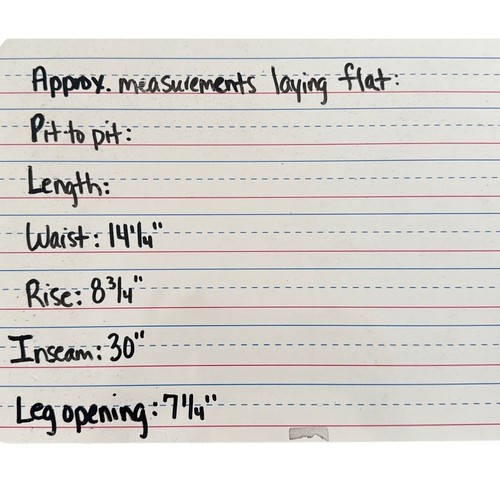 Approx. measurements laying flat:
Pit to pit:
Length:
Waist: 14 1/4"
Rise: 8 3/4"
Inseam: 30"
Leg opening: 7 1/4"